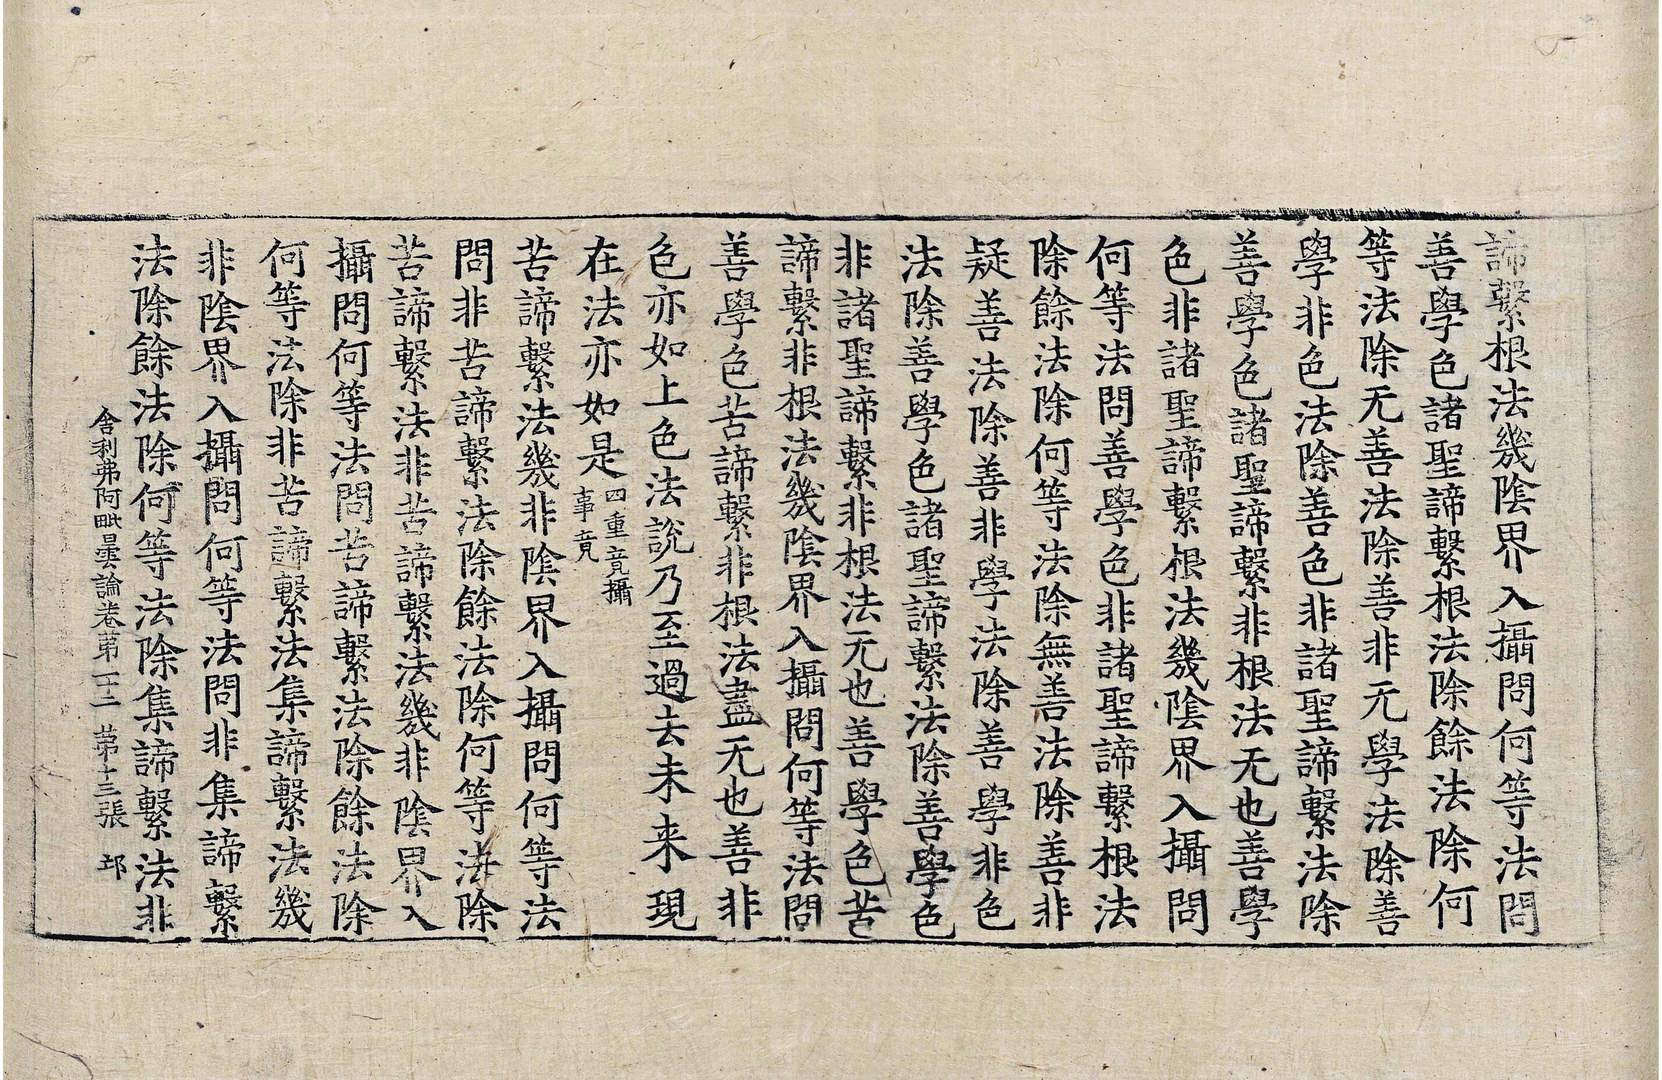 諦繫根法幾陰界入攝問何等法問
善學色諸聖諦繫根法除餘法除何
等法除无善法除善非无學法除善
學非色法除善色非諸聖諦繫法除
善學色諸聖諦繫非根法无也善學
色非諸聖諦繫根法幾陰界入攝問
何等法問善學色非諸聖諦繫根法
除餘法除何等法除無善法除善非
疑善法除善非學法除善學非色
法除善學色諸聖諦繫法除善學色
非諸聖諦繫非根法无也善學色苦
諦繫非根法幾陰界入攝問何等法問
善學色苦諦繫非根法盡无也善非
色亦如上色法說乃至過去未来現
在法亦如是四重竟攝事竟
苦諦繫法幾非陰界入攝問何等法
問非苦諦繫法除餘法除何等法除
苦諦繫法非苦諦繫法幾非陰界入
攝問何等法問苦諦繫法除餘法除
何等法除非苦諦繫法集諦繫法幾
非陰界入攝問何等法問非集諦繫
法除餘法除何等法除集諦繫法非
舍利弗阿毗曇論卷苐 苐十三張 邛